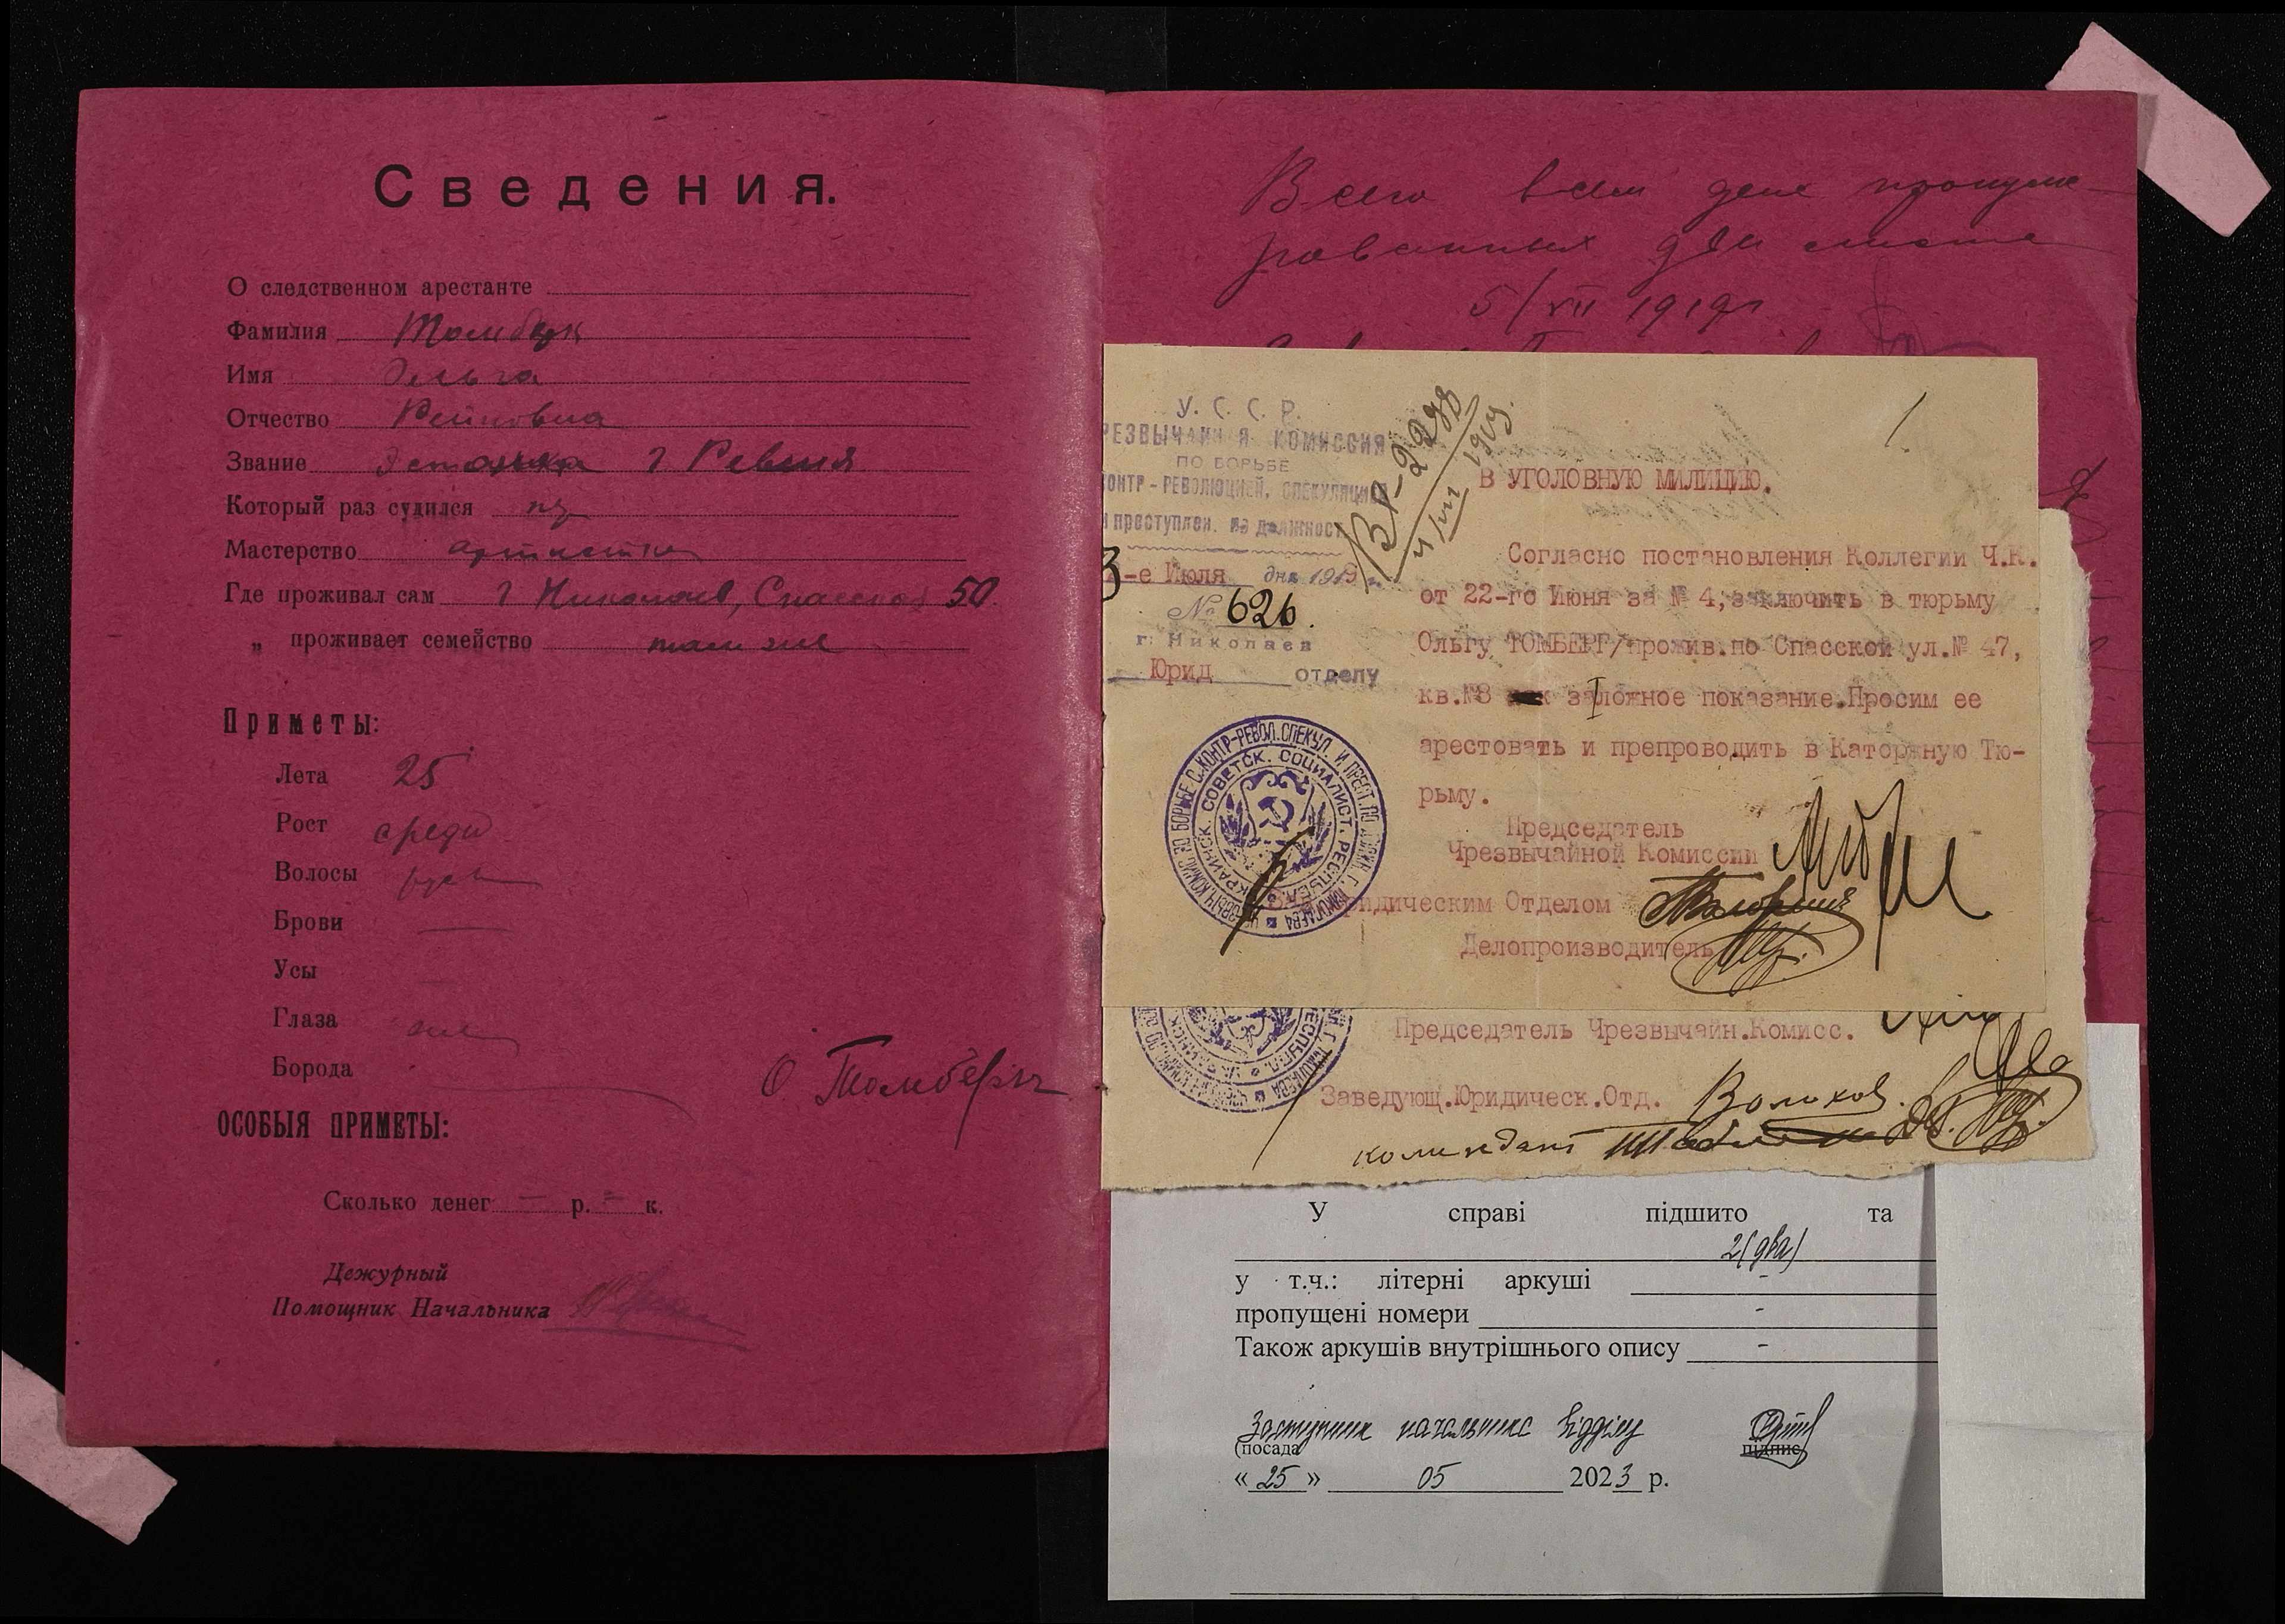 Сведения.
О следственном арестанте
Фамилия
Имя Ольга
Отчество Рейновна
Звание Эстонка г Ревеля
Который раз судился
Мастерство артистка
Где проживал сам г Николаев, Спасская 50
„ проживает семейство там же
Приметы:
Лета 25
Рост средн
Волосы
Брови —
Усы —
Глаза
Борода
О. Томбергъ
ОСОБЫЯ ПРИМЕТЫ:
Сколько денег — р. — к.
Дежурный
Помощник Начальника
Всего в сем деле пронуме-
рованных два листа
5/VII 1919г
У. С. С. Р.
РЕЗВЫЧАЙН Я КОМИССИЯ
ПО БОРЬБЕ
ОНТР-РЕВОЛЮЦИЕЙ, СПЕКУЛЯЦИ
преступлен. по должност
3-е Июля дня 1919 г.
№ 626.
г. Николаев
Юрид отделу
4/VII 1919.
1
В УГОЛОВНУЮ МИЛИЦИЮ.
Согласно постановления Коллегии Ч.К.
от 22-го Июня за № 4, заключить в тюрьму
Ольгу ТОМБЕРГ/прожив.по Спасской ул.№ 47,
кв.№8 за ложное показание.Просим ее
арестовать и препроводить в Каторжную Тю-
рьму.
Председатель
Чрезвычайной Комиссии
ридическим Отделом
Делопроизводитель
Председатель Чрезвычайн.Комисс.
Заведующ.Юридическ.Отд. Волохов.
комендант
У справі підшито та
2(два)
у т.ч.: літерні аркуші -
пропущені номери -
Також аркушів внутрішнього опису -
Заступник начальника відділу
(посада підпис
« 25 » 05 2023 р.